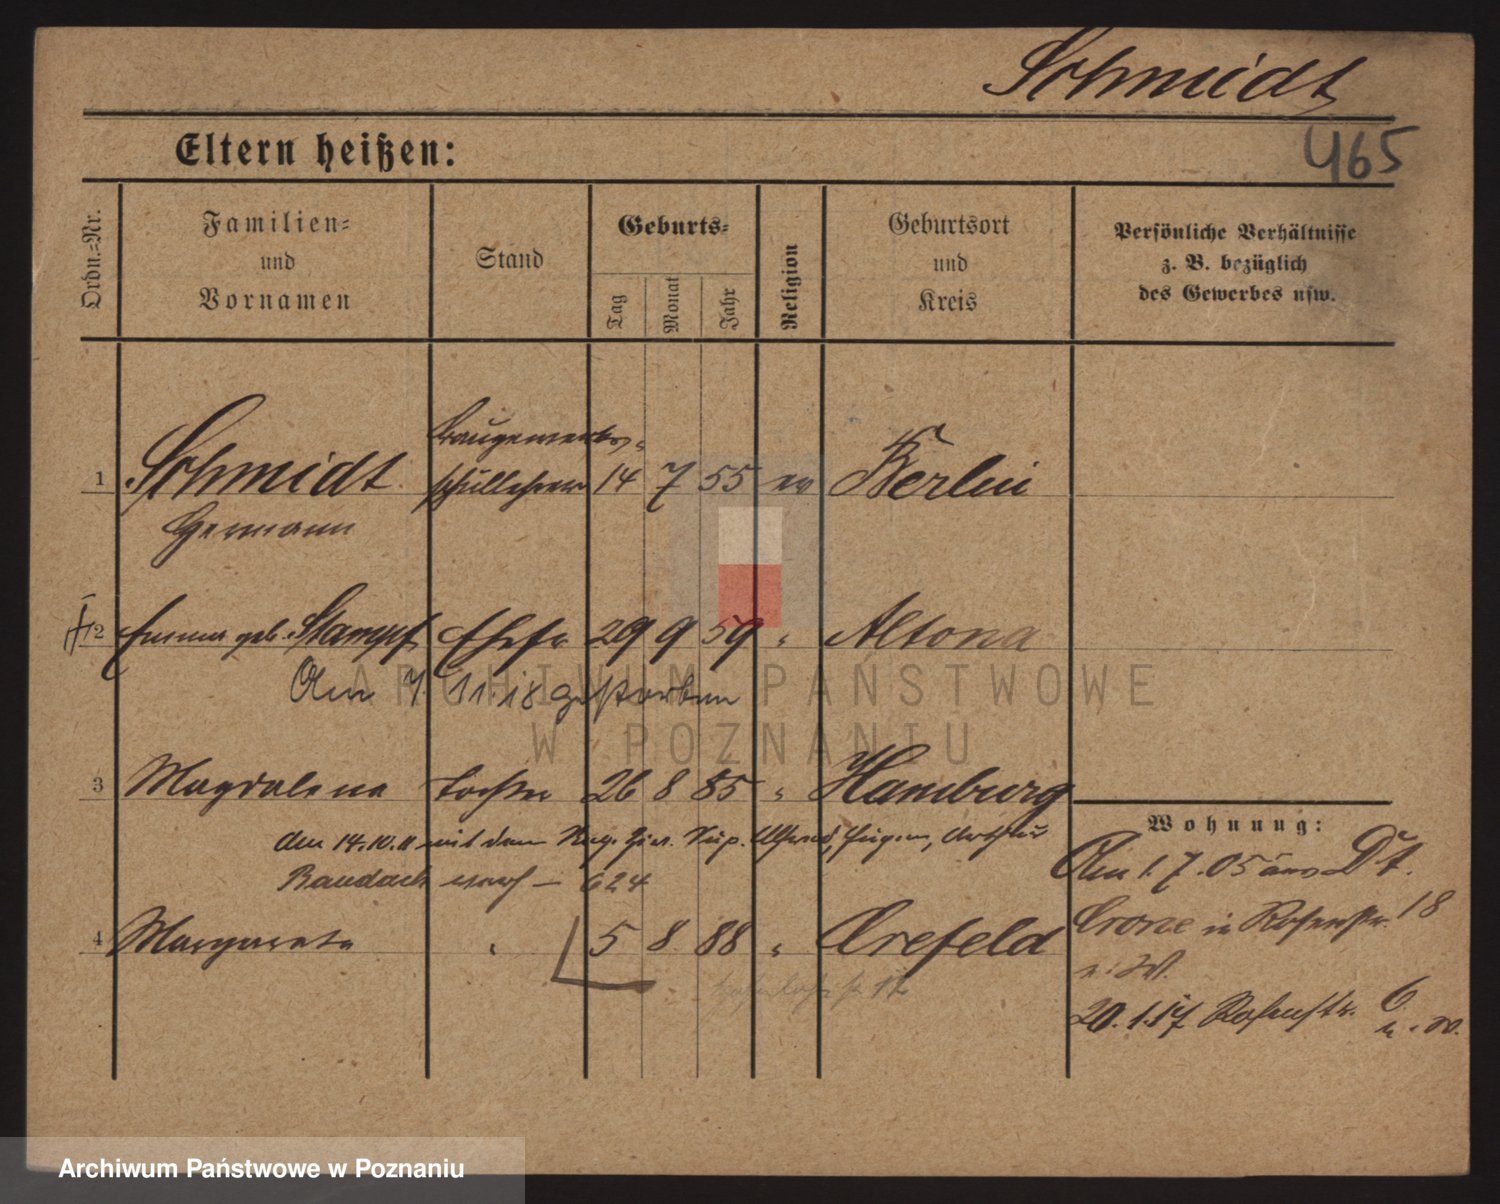 Schmidt
465
Eltern heißen:
Ordn.-Nr.
Familien-
und
Vornamen
Stand
Geburts-
Tag
Monat
Jahr
Religion
Geburtsort
und
Kreis
Persönliche Verhältnisse
z. B. bezüglich
des Gewerbes usw.
Baugewerks-
1 Schmidt schullehrer 14 7 55 ev Berlin
Hermann
2 Emma geb. Stampf Ehefr 29 9 59 " Altona
Am 7. 11. 18 gestorben
3 Magdalena Tochter 26 8 85 " Hamburg
am 14.10.11 mit dem Reg. Sup. Alfred, Eugen, Arthur
Baudach verh – 624
4 Margarete " 5 8 88 " Crefeld
12
Wohnung:
Am 1.7.05 aus Dt.
Crone in Rosenstr. 18
n. W.
20.1.17 Rosenstr. 6
n. W.
ARCHIWUM PAŃSTWOWE
W POZNANIU
Archiwum Państwowe w Poznaniu